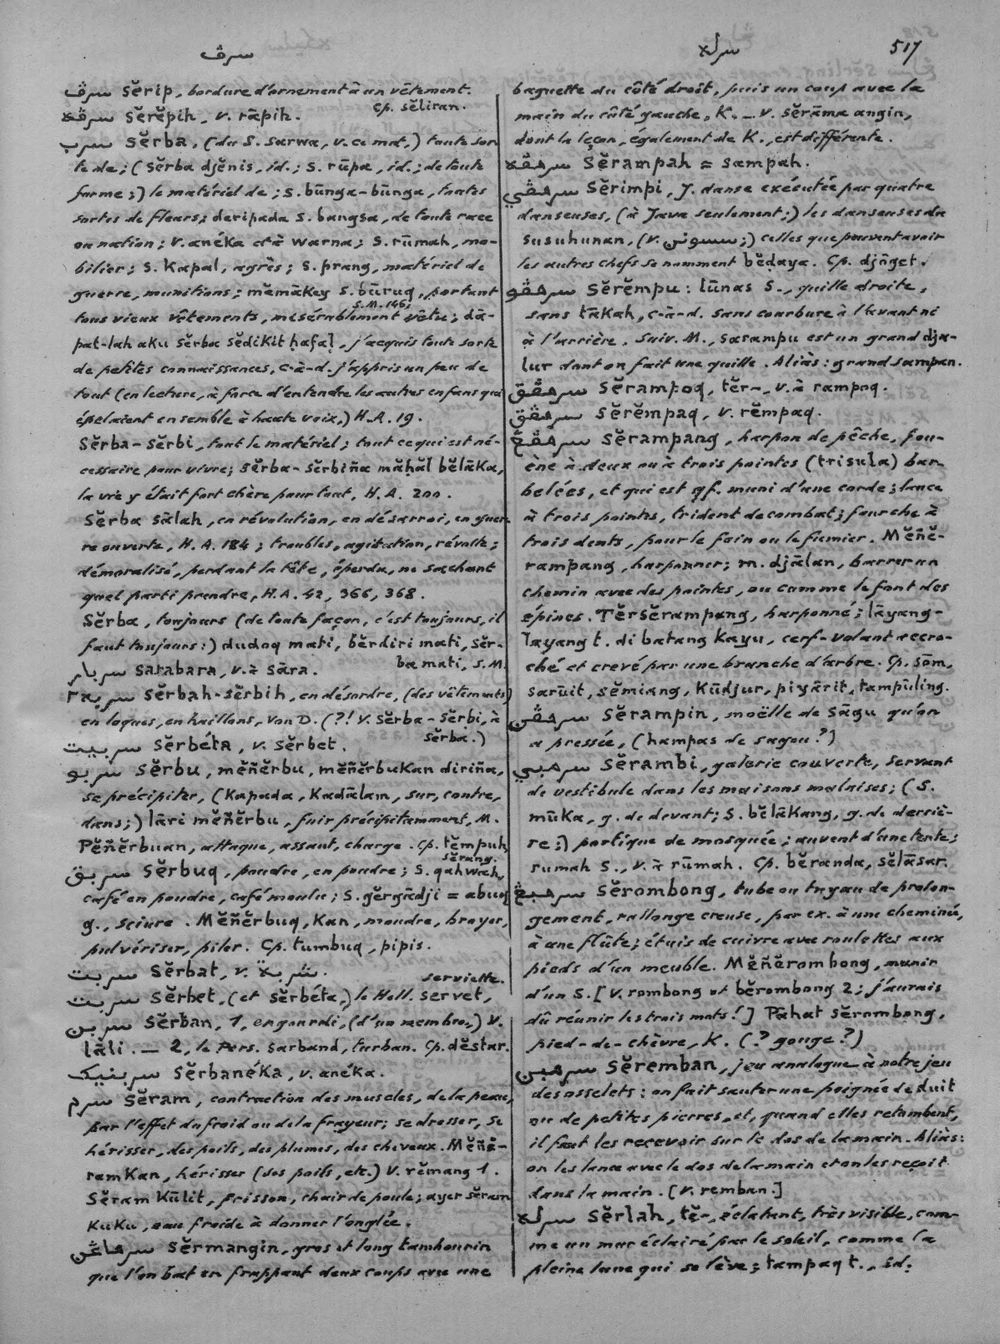 سرڤ
سرله
517
سرڤ sĕrip, bordure d'ornement à un vêtement.
سرڤه sĕrĕpih, v. rāpih. Cp. sĕliran.
سرب sĕrba, (du S. sarwa, v. ce mat,) toute sor-
te de; (sĕrba djĕnis, id.; s. rūpa, id.; de toute
forme;) le matériel de; s. būnga-būnga, toutes
sortes de fleurs; deripada s. bangsa, de toute race
ou nation; v. anéka et à warna; s. rūmah, mo-
bilier; s. kapal, agrès; s. prang, matériel de
guerre, munitions; mĕmākey s. būruq, portant
tous vieux vêtements, misérablement vêtu; dā- S.M. 146;
pat-lah aku sĕrba sĕdikit ḥafaḷ, j'acquis toute sorte
de petites connaissances, c-à-d. j'appris un peu de
tout (en lecture, à force d'entendre les autres enfans qui
épelaient ensemble à haute voix,) H.A. 19.
Sĕrba-sĕrbi, tout le matériel; tout ce qui est né-
cessaire pour vivre; sĕrba-sĕrbiña māḥāl bĕlāka,
la vie y était fort chère pour tout, H.A. 200.
Sĕrba sālah, en révolution, en désarroi, en guer-
re ouverte, H.A. 184; troubles, agitation, révolte;
démoralisé, perdant la tête, éperdu, ne sachant
quel parti prendre, H.A. 42, 366, 368.
Sĕrba, toujours (de toute façon, c'est toujours, il
faut toujours:) dudoq mati, bĕrdiri mati, sĕr-
سربار sarabara, v. à sāra. ba mati, S.M.
سربه٢ sĕrbah-sĕrbih, en désordre, (des vêtements)
en loques, en haillons, von D. (?! v. sĕrba-sĕrbi, à
سربيت sĕrbéta, v. sĕrbet. sĕrba.)
سربو sĕrbu, mĕñĕrbu, mĕñĕrbukan diriña,
se précipiter, (kapada, kadālam, sur, contre,
dans;) lāri mĕñĕrbu, fuir précipitamment, M.
Pĕñĕrbuan, attaque, assaut, charge. Cp. tĕmpuh,
سربق sĕrbuq, poudre, en poudre; s. qahwah, sĕrang.
café en poudre, café moulu; s. gĕrgādji = abuq
g., sciure. Mĕñĕrbuq, kan, moudre, broyer,
pulvériser, piler. Cp. tumbuq, pipis.
سربت sĕrbat, v. شربة.
سربت sĕrbet, (et sĕrbéta,) le Holl. servet, serviette.
سربن sĕrban, 1, engourdi, (d'un membre,) v.
lāli. — 2, le Pers. sarband, turban. Cp. dĕstar.
سربنيك sĕrbanéka, v. anéka.
سرم sĕram, contraction des muscles, de la peau,
par l'effet du froid ou de la frayeur; se dresser, se
hérisser, des poils, des plumes, des cheveux. Mĕñĕ-
ramkan, hérisser (ses poils, etc.) v. rĕmang 1.
Sĕram kūlit, frisson, chair de poule; ayer sĕram
kuku, eau froide à donner l'onglée.
سرماڠن sĕrmangin, gros et long tambourin
que l'on bat en frappant deux coups avec une
baguette du côté droit, puis un coup avec la
main du côté gauche, K. — v. sĕrāma angin,
dont la leçon, également de K., est différente.
سرمڤه sĕrampah = sampah.
سرمڤي sĕrimpi, J. danse exécutée par quatre
danseuses, (à Java seulement;) les danseuses du
susuhunan, (v. سسوهنن;) celles que peuvent avoir
les autres chefs se nomment bĕdaya. Cp. djōget.
سرمڤو sĕrĕmpu: lūnas s., quille droite,
sans tākah, c-à-d. sans courbure à l'avant ni
à l'arrière. Suiv. M., sarampu est un grand dja-
lur dont on fait une quille. Aliàs: grand sampan.
سرمڤق sĕrampoq, tĕr-, v. à rampoq.
سرمڤق sĕrĕmpaq, v. rĕmpaq.
سرمڤڠ sĕrampang, harpon de pêche, fou-
ène à deux ou à trois pointes (trisula) bar-
belées, et qui est qf. muni d'une corde; lance
à trois pointes, trident de combat; fourche à
trois dents, pour le foin ou le fumier. Mĕñĕ-
rampang, harponner; m. djālan, barrer un
chemin avec des pointes, ou comme le font des
épines. Tĕrsĕrampang, harponné; lāyang-
layang t. di batang kayu, cerf-volant accro-
ché et crevé par une branche d'arbre. Cp. sōm,
saruit, sĕmiang, kūdjur, piyārit, tampūling.
سرمڤن sĕrampin, moëlle de sāgu qu'on
a pressée, (hampas de sagou?)
سرمبي sĕrambi, galerie couverte, servant
de vestibule dans les maisons malaises; (s.
mūka, g. de devant; s. bĕlākang, g. de derriè-
re;) portique de mosquée; auvent d'une tente;
rumah s., v. à rūmah. Cp. bĕranda, sĕlāsar.
سرمبڠ sĕrombong, tube ou tuyau de prolon-
gement, rallonge creuse, par ex. à une cheminée,
à une flûte; étuis de cuivre avec roulettes aux
pieds d'un meuble. Mĕñĕrombong, munir
d'un s. [v. rombong et bĕrombong 2; j'aurais
dû réunir les trois mots!] Pāhat sĕrombong,
pied-de-chèvre, K. (? gouge?)
سرمبن sĕremban, jeu analogue à notre jeu
des osselets: on fait sauter une poignée de duit
ou de petites pierres, et, quand elles retombent,
il faut les recevoir sur le dos de la main. Aliàs:
on les lance avec le dos de la main et on les reçoit
dans la main. [v. remban.]
سرله sĕrlah, tĕ-, éclatant, très visible, com-
me un mur éclairé par le soleil, comme la
pleine lune qui se lève; tampaq t., id.